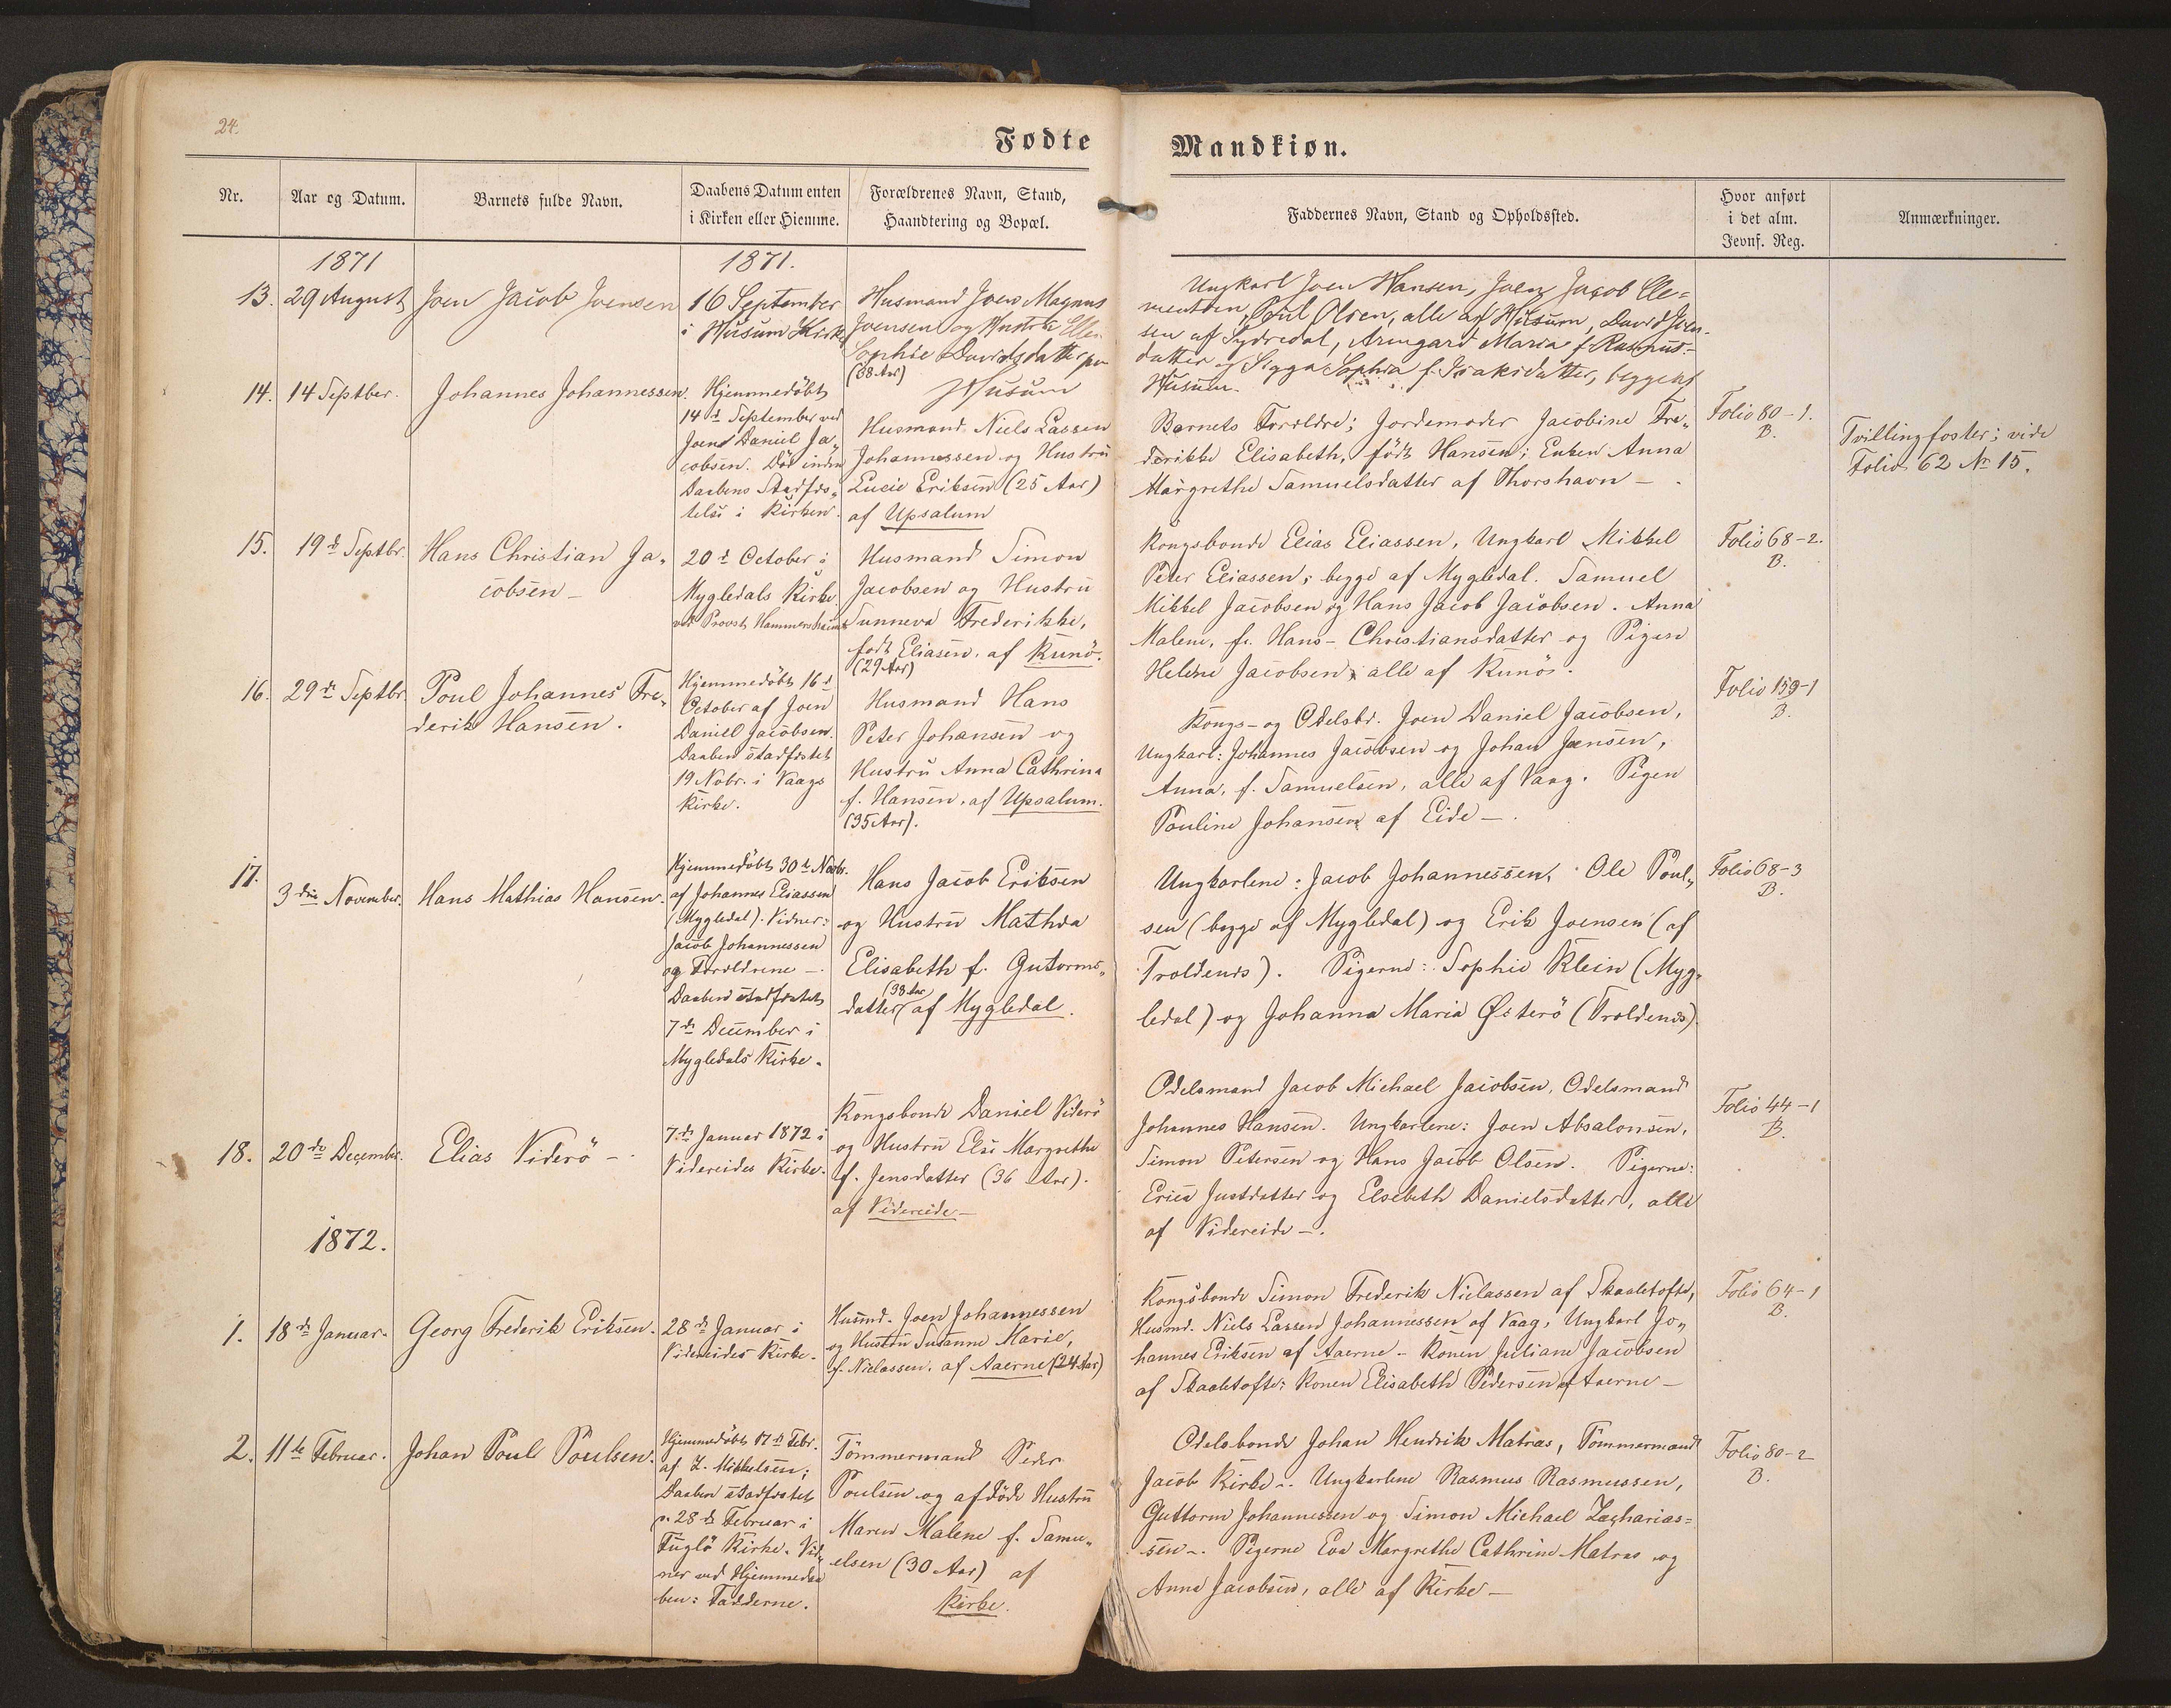 24.
Fødte
Mandkiøn.
Nr.
Aar og Datum.
Barnets fulde Navn.
Daabens Datum enten
i Kirken eller Hiemme.
Forældrenes Navn, Stand,
Haandtering og Bopæl.
Faddernes Navn, Stand og Opholdssted.
Hvor anført
i det alm.
Jevnf. Reg.
Anmærkninger.
1871
1871.
13.
29 August
Joen Jacob Joensen
16 September
i Husum Kirke
Husmand Joen Magnus
Joensen og Hustru Ellen
Sophie Davidsdatter paa
(38 Aar)
Husum
Ungkarl Joen Hansen, Joen Jacob Cle=
mentsen, Poul Olsen, alle af Husum, David Joen-
sen af Sydredal, Armgard Maria f. Rasmus-
datter og Sigga Sophia f. Isaksdatter, begge af
Husum.
14.
14 Septber.
Johannes Johannessen.
Hjemmedøbt
14d September ved
Joen Daniel Ja„
cobsen. Død inden
Daabens Stadfæs„
telse i Kirken.
Husmand Niels Lassen
Johannessen og Hustru
Lucie Eriksen (25 Aar)
af Upsalum
Barnets Forældre; Jordemoder Jacobine Fre„
derikke Elisabeth, født Hansen; Enken Anna
Margrethe Samuelsdatter af Thorshavn —
Folio 80-1.
B.
Tvillingfoster; vide
Folio 62 No 15.
15.
19d Septbr.
Hans Christian Ja„
cobsen —
20d October i
Mygledals Kirke
ved Provst Hammershaimb
Husmand Simon
Jacobsen og Hustru
Sunneva Frederikke,
født Eliasen. af Kunö.
(29 Aar)
Kongsbonde Elias Eliassen, Ungkarl Mikkel
Peter Eliassen, begge af Mygledal. Samuel
Mikkel Jacobsen og Hans Jacob Jacobsen. Anna
Malene, f. Hans-Christiansdatter og Pigen
Helene Jacobsen, alle af Kunö.
Folio 68-2.
B.
16.
29de Septbr.
Poul Johannes Fre„
derik Hansen.
Hjemmedøbt 16d
October af Joen
Daniel Jacobsen.
Daaben stadfæstet
19 Nobr. i Vaags
Kirke.
Husmand Hans
Peter Johansen og
Hustru Anna Cathrina
f. Hansen. af Upsalum.
(35 Aar).
Kongs- og Odelsbd. Joen Daniel Jacobsen,
Ungkarl: Johannes Jacobsen og Johan Jensen,
Anna, f. Samuelsen, alle af Vaag. Pigen
Pouline Johansen af Eide —.
Folio 159-1
B.
17.
3die November.
Hans Mathias Hansen.
Hjemmedøbt 30d Novbr.
af Johannes Eliassen
(Mygledal). Vidner:
Jacob Johannessen
og Forældrene —.
Daaben stadfæstet
7de December i
Mygledals Kirke.
Hans Jacob Eriksen
og Hustru Mathea
Elisabeth f. Gutorms„
(38 Aar)
datter af Mygledal.
Ungkarlene: Jacob Johannessen, Ole Poul„
sen (begge af Mygledal) og Erik Joensen (af
Troldenæs). Pigerne: Sophie Klein (Myg„
ledal) og Johanna Maria Østerö (Troldenæs).
Folio 68-3
B.
18.
20de Decembr.
Elias Viderö —.
7de Januar 1872 i
Videreides Kirke.
Kongsbonde Daniel Viderö
og Hustru Else Margrethe
f. Jensdatter (36 Aar).
af Videreide —
Odelsmand Jacob Michael Jacobsen, Odelsmand
Johannes Hansen. Ungkarlene: Joen Absalonsen,
Simon Petersen og Hans Jacob Olsen. Pigerne:
Erica Justdatter og Elsebeth Danielsdatter, alle
af Videreide —.
Folio 44-1
B.
1872.
1.
18de Januar.
Georg Frederik Eriksen.
28de Januar i
Videreides Kirke.
Husmd. Joen Johannessen
og Hustru Susanne Marie,
f. Nielassen. af Aaerne (24 Aar)
Kongsbonde Simon Frederik Nielassen af Skaaletofte,
Husmd. Niels Lassen Johannessen af Vaag, Ungkarl Jo„
hannes Eriksen af Aaerne - Konen Juliane Jacobsen
af Skaaletofte; Konen Elisabeth Pedersen af Aaerne —
Folio 64-1
B.
2.
11te Februar.
Johan Poul Poulsen.
Hjemmedøbt 17de Febr.
af Z. Mikkelsen;
Daaben stadfæstet
d. 28de Februar i
Fuglö Kirke. Vid„
ner ved Hjemmedaa
ben: Fadderne.
Tömmermand Peder
Poulsen og afdöde Hustru
Maren Malene f. Samu„
elsen (30 Aar) af
Kirke.
Odelsbonde Johan Hendrik Matras, Tömmermand
Jacob Kirke -. Ungkarlene Rasmus Rasmussen,
Guttorm Johannessen og Simon Michael Zacharias=
sen -. Pigerne Eva Margrethe Cathrine Matras og
Anne Jacobsen, alle af Kirke —
Folio 80-2
B.